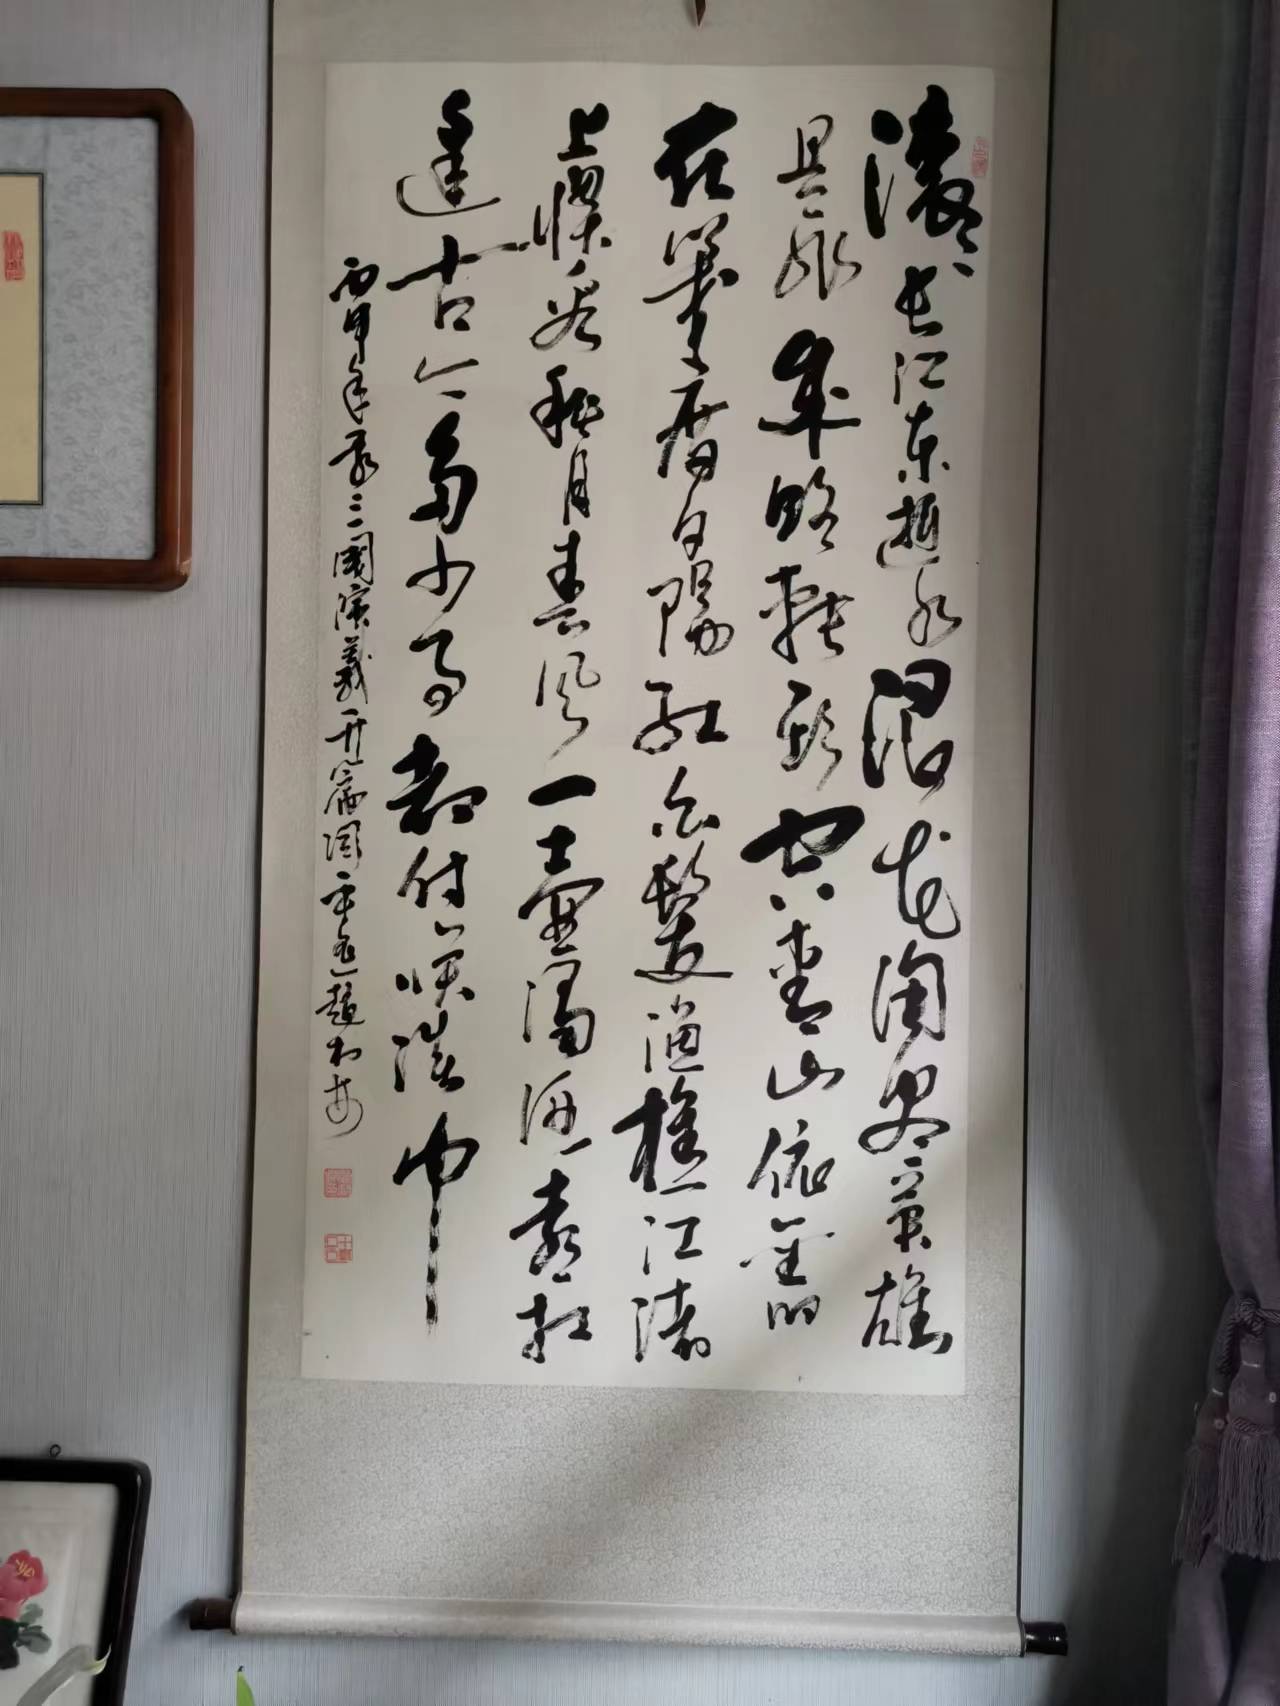 滚滚长江东逝水浪花淘尽英雄
是非成败转头空青山依旧
在几度夕陽红白髮渔樵江渚
上惯看秋月春风一壶濁酒喜相
逢古今多少事都付笑谈中
丙申年录三國演義开篇词